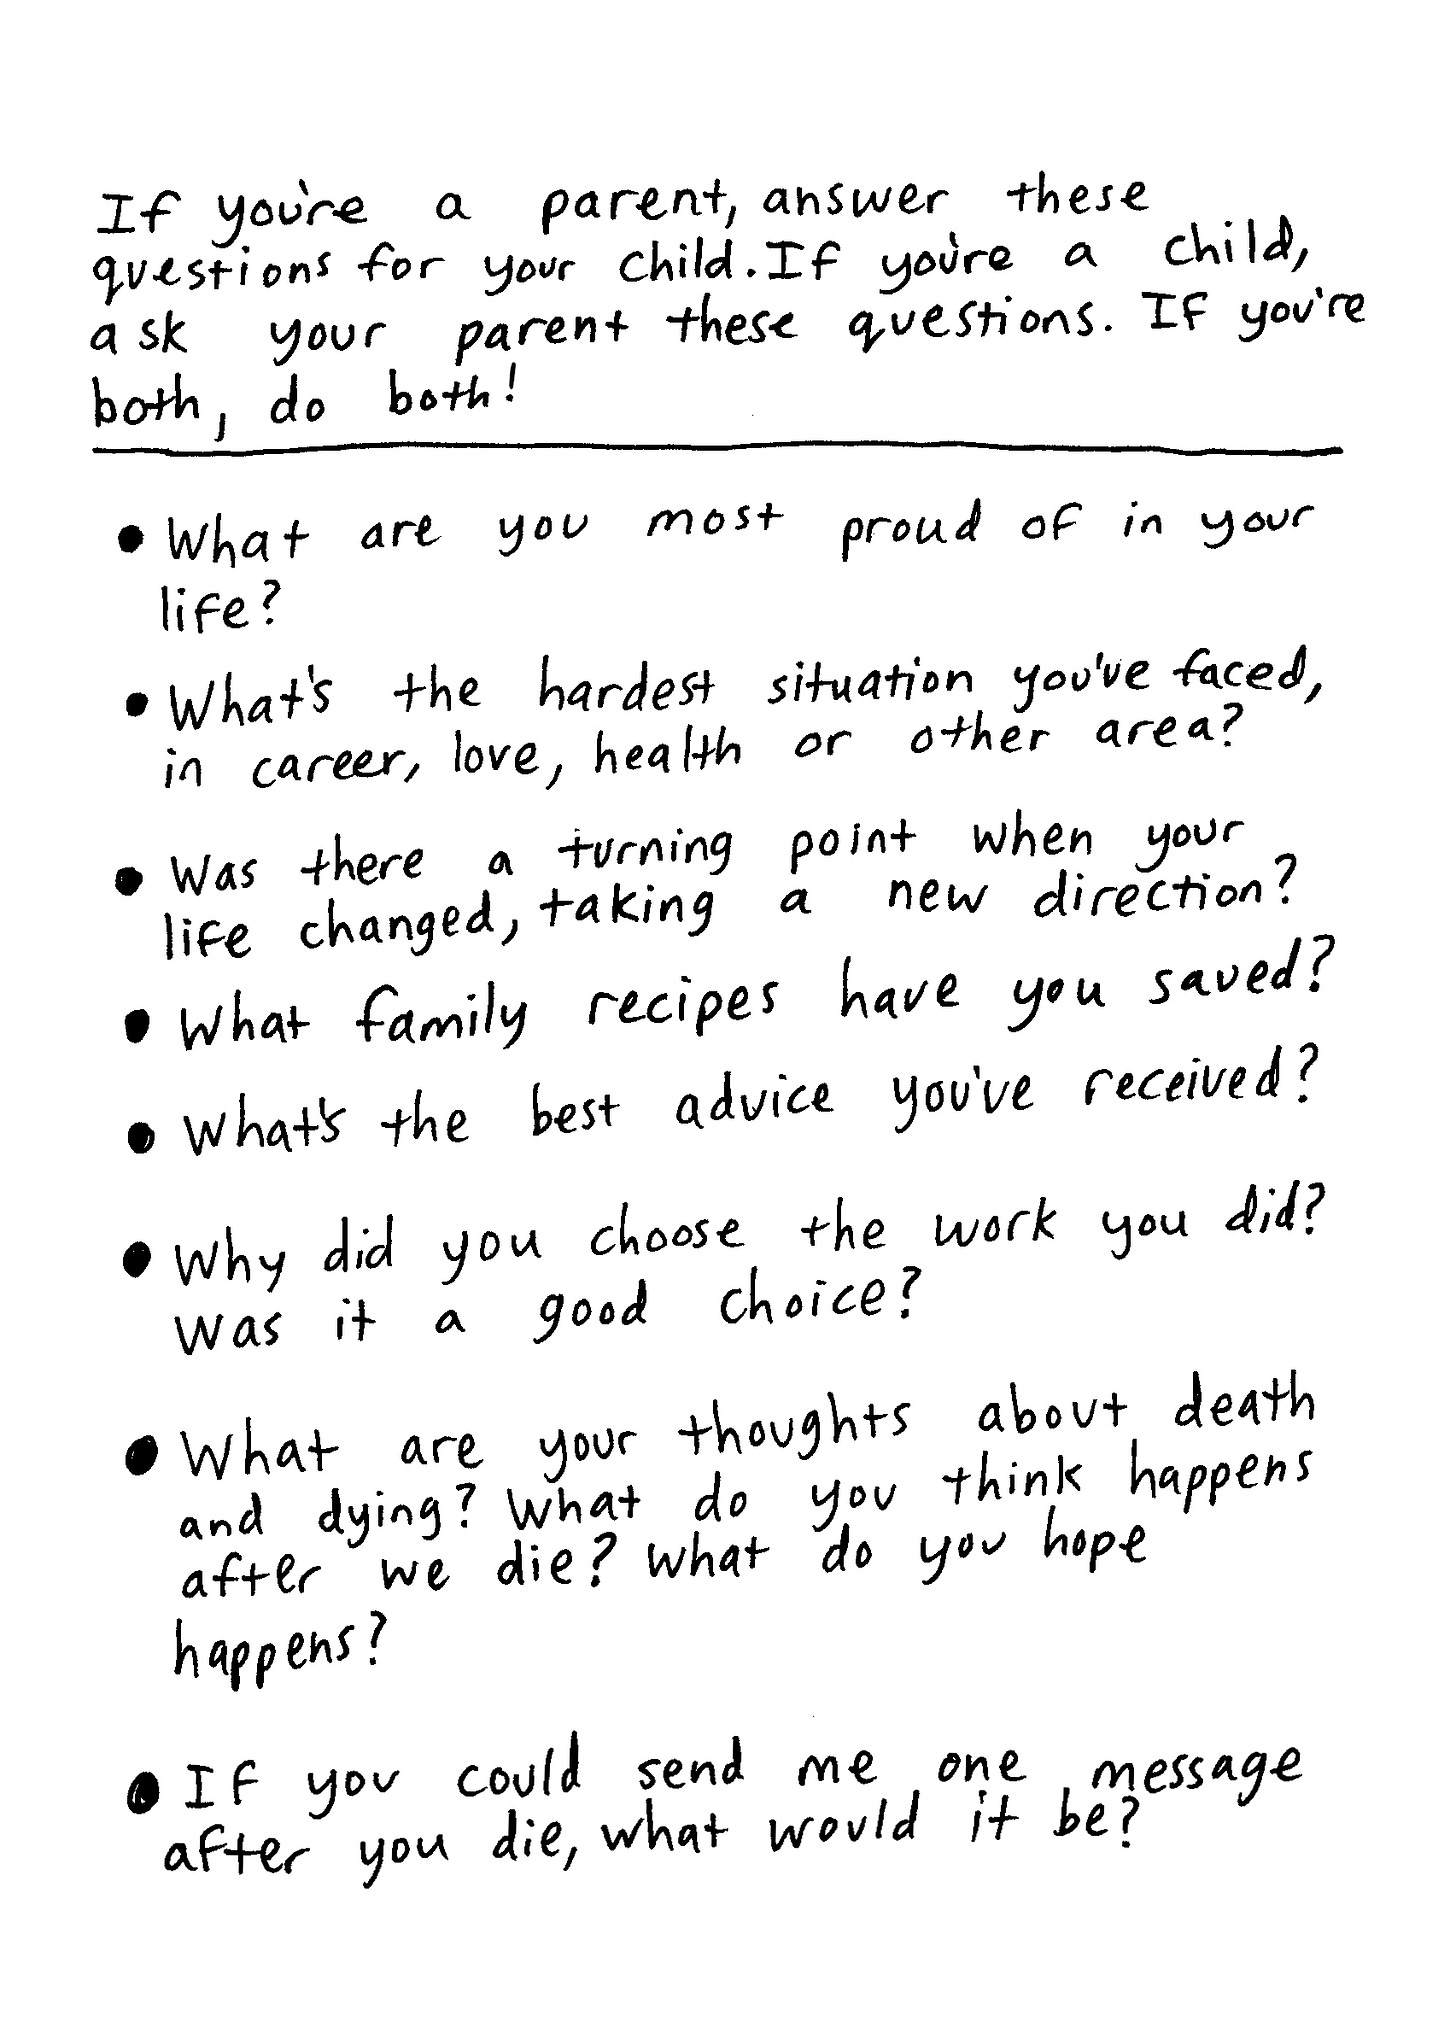 If you're a parent, answer these
questions for your child. If you're a child,
ask your parent these questions. If you're
both, do both!
• What are you most proud of in your
life?
• What's the hardest situation you've faced,
in career, love, health or other area?
• Was there a turning point when your
life changed, taking a new direction?
• What family recipes have you saved?
• What's the best advice you've received?
• Why did you choose the work you did?
Was it a good choice?
• What are your thoughts about death
and dying? What do you think happens
after we die? What do you hope
happens?
• If you could send me one message
after you die, what would it be?